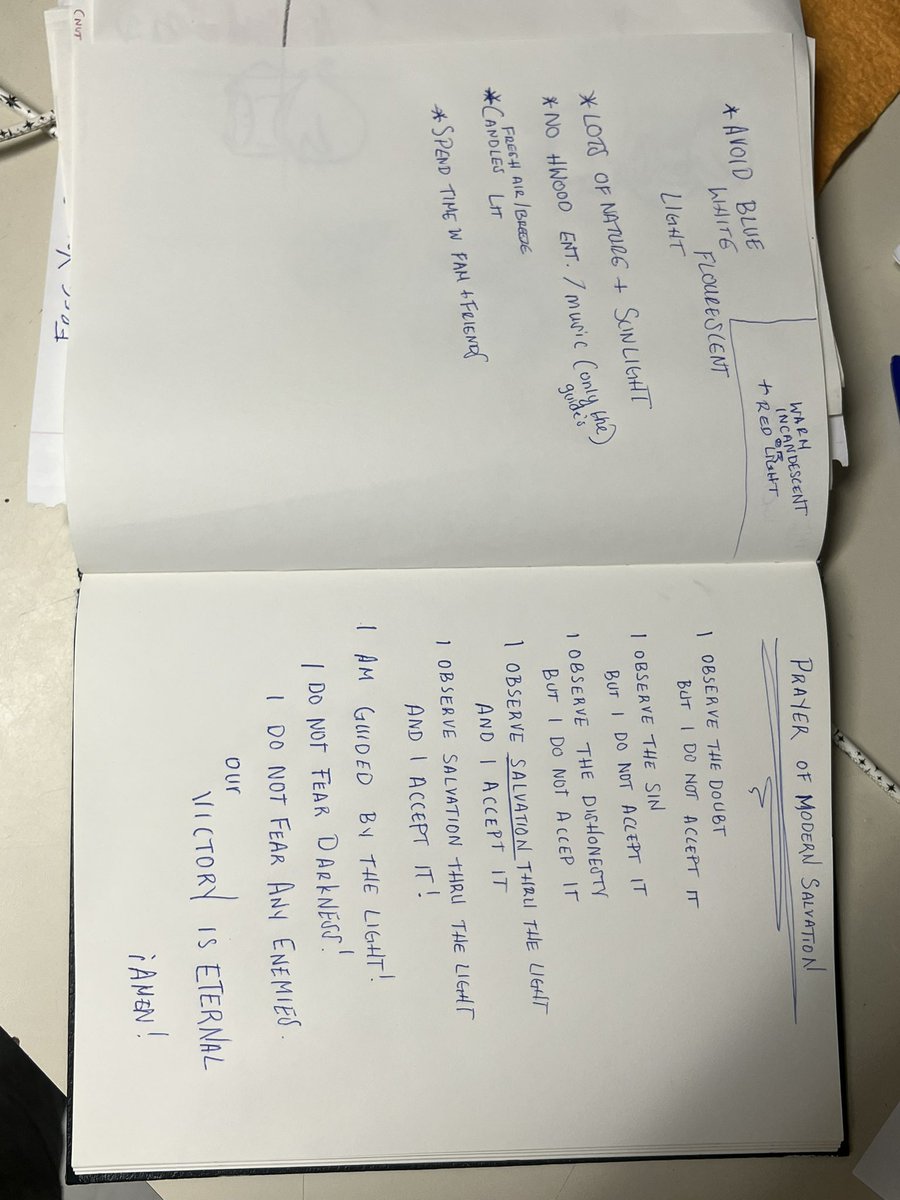 * AVOID BLUE
WHITE FLOURESCENT
LIGHT
WARM
INCANDESCENT
OR
+ RED LIGHT
* LOTS OF NATURE + SUNLIGHT
* NO HWOOD ENT. / music (only the)
guide's
FRESH AIR/BREEZE
* CANDLES LIT
* SPEND TIME W FAM + FRIENDS
PRAYER OF MODERN SALVATION
I OBSERVE THE DOUBT
BUT I DO NOT ACCEPT IT
I OBSERVE THE SIN
BUT I DO NOT ACCEPT IT
I OBSERVE THE DISHONESTY
BUT I DO NOT ACCEP IT
I OBSERVE SALVATION THRU THE LIGHT
AND I ACCEPT IT
I OBSERVE SALVATION THRU THE LIGHT
AND I ACCEPT IT!
I AM GUIDED BY THE LIGHT!
I DO NOT FEAR DARKNESS!
I DO NOT FEAR ANY ENEMIES.
OUR
VICTORY IS ETERNAL
¡AMEN!